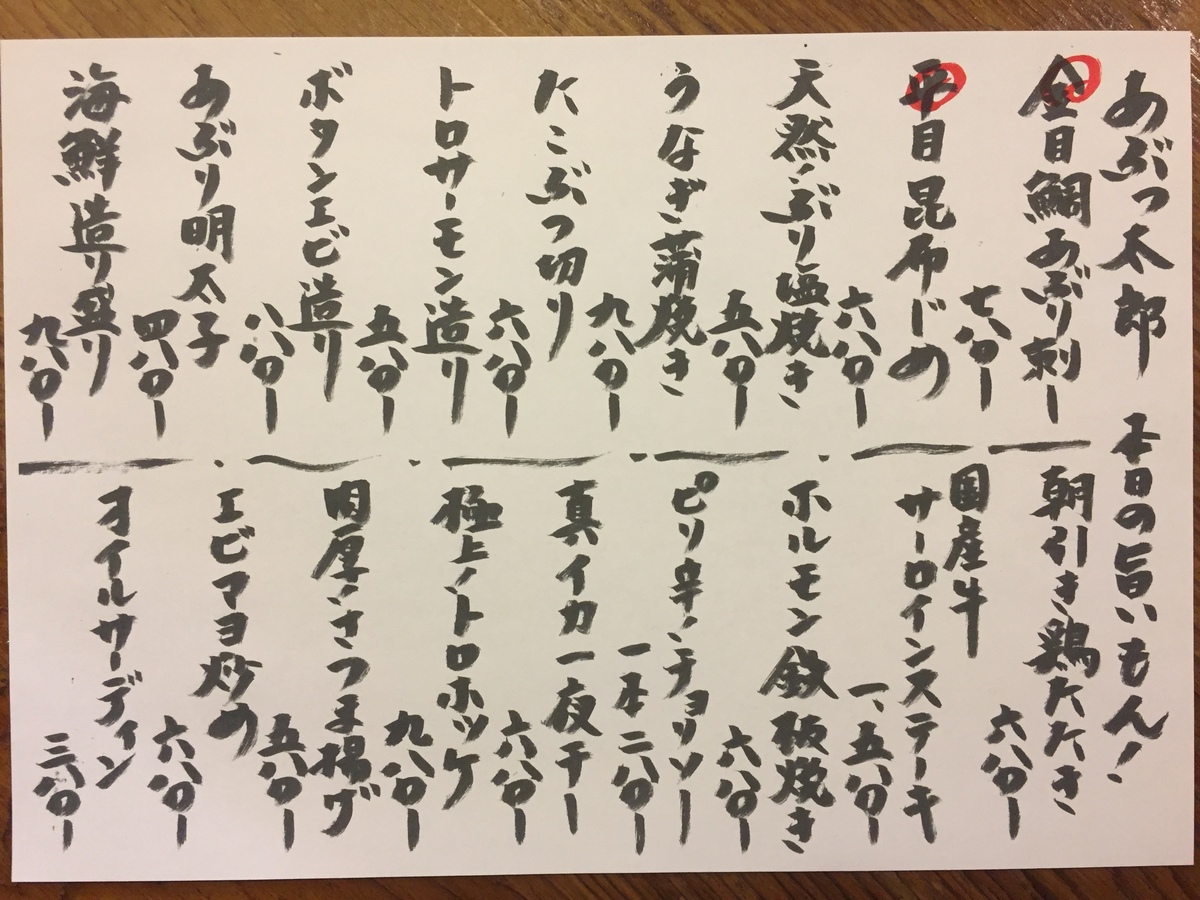 あぶつ太郎 本日の旨いもん!
金目鯛あぶり刺し
七八〇ー
平目昆布じめ
六八〇ー
天然ぶり塩焼き
五八〇ー
うなぎ蒲焼き
九八〇ー
たこぶつ切り
六八〇ー
トロサーモン造り
五八〇ー
ボタンエビ造り
八八〇ー
あぶり明太子
四八〇ー
海鮮造り盛り
九八〇ー
朝引き鶏たたき
六八〇ー
国産牛
サーロインステーキ
一、五八〇ー
ホルモン鉄板焼き
六八〇ー
ピリ辛チョリソー
一本二八〇ー
真イカ一夜干し
六八〇ー
極上トロホッケ
九八〇ー
肉厚さつま揚げ
五八〇ー
エビマヨ炒め
六八〇ー
オイルサーディン
三八〇ー